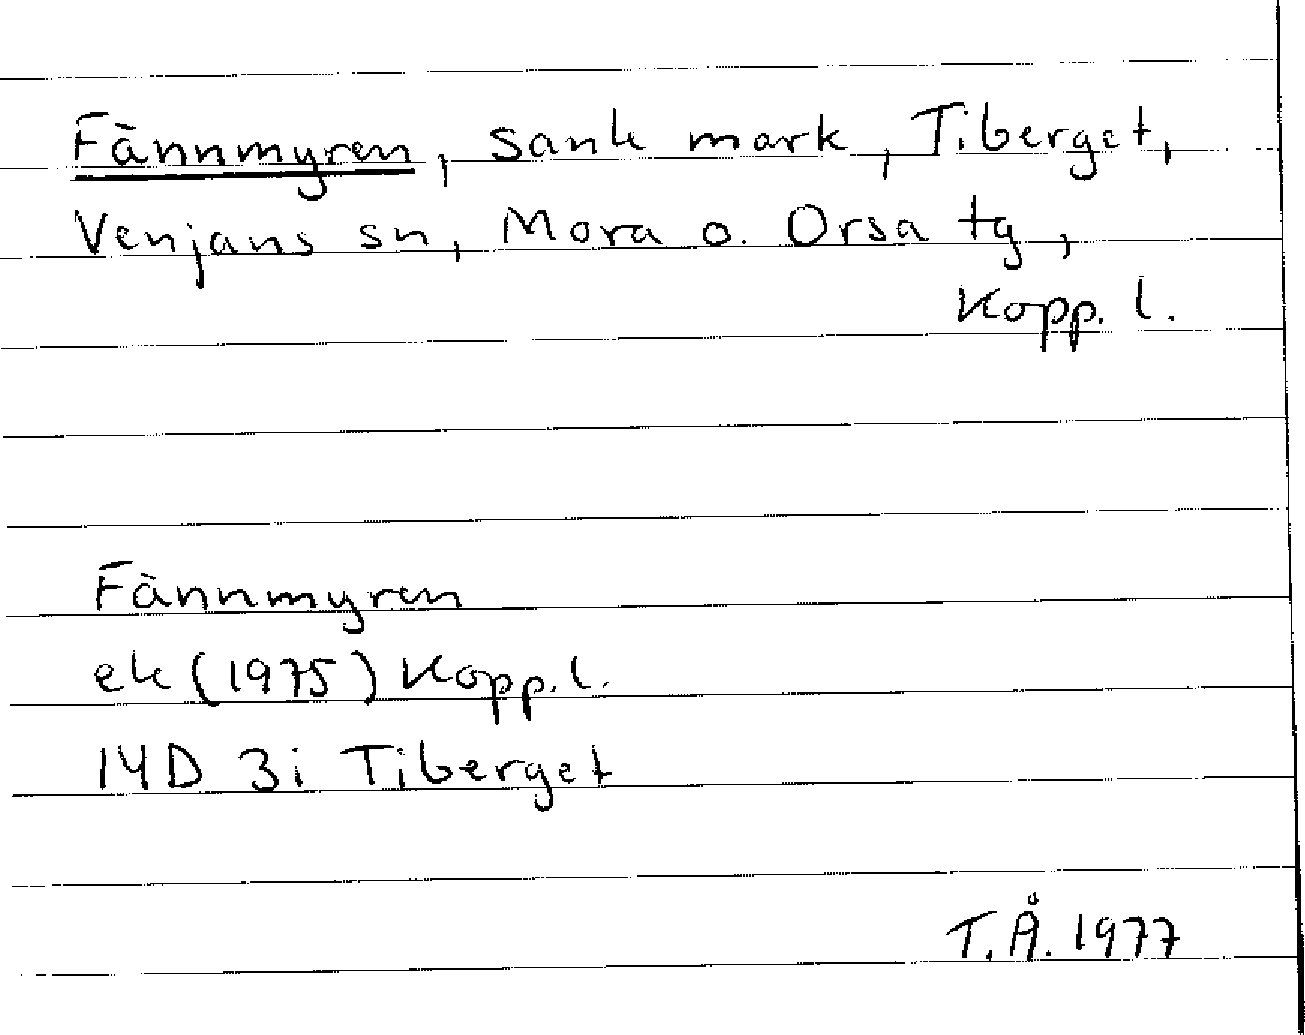 Fännmyren, sank mark, Tiberget,
Venjans sn, Mora o. Orsa tg,
Kopp. l.
Fännmyren
ek (1975) Kopp. l.
14D 3i Tiberget
T.Å. 1977